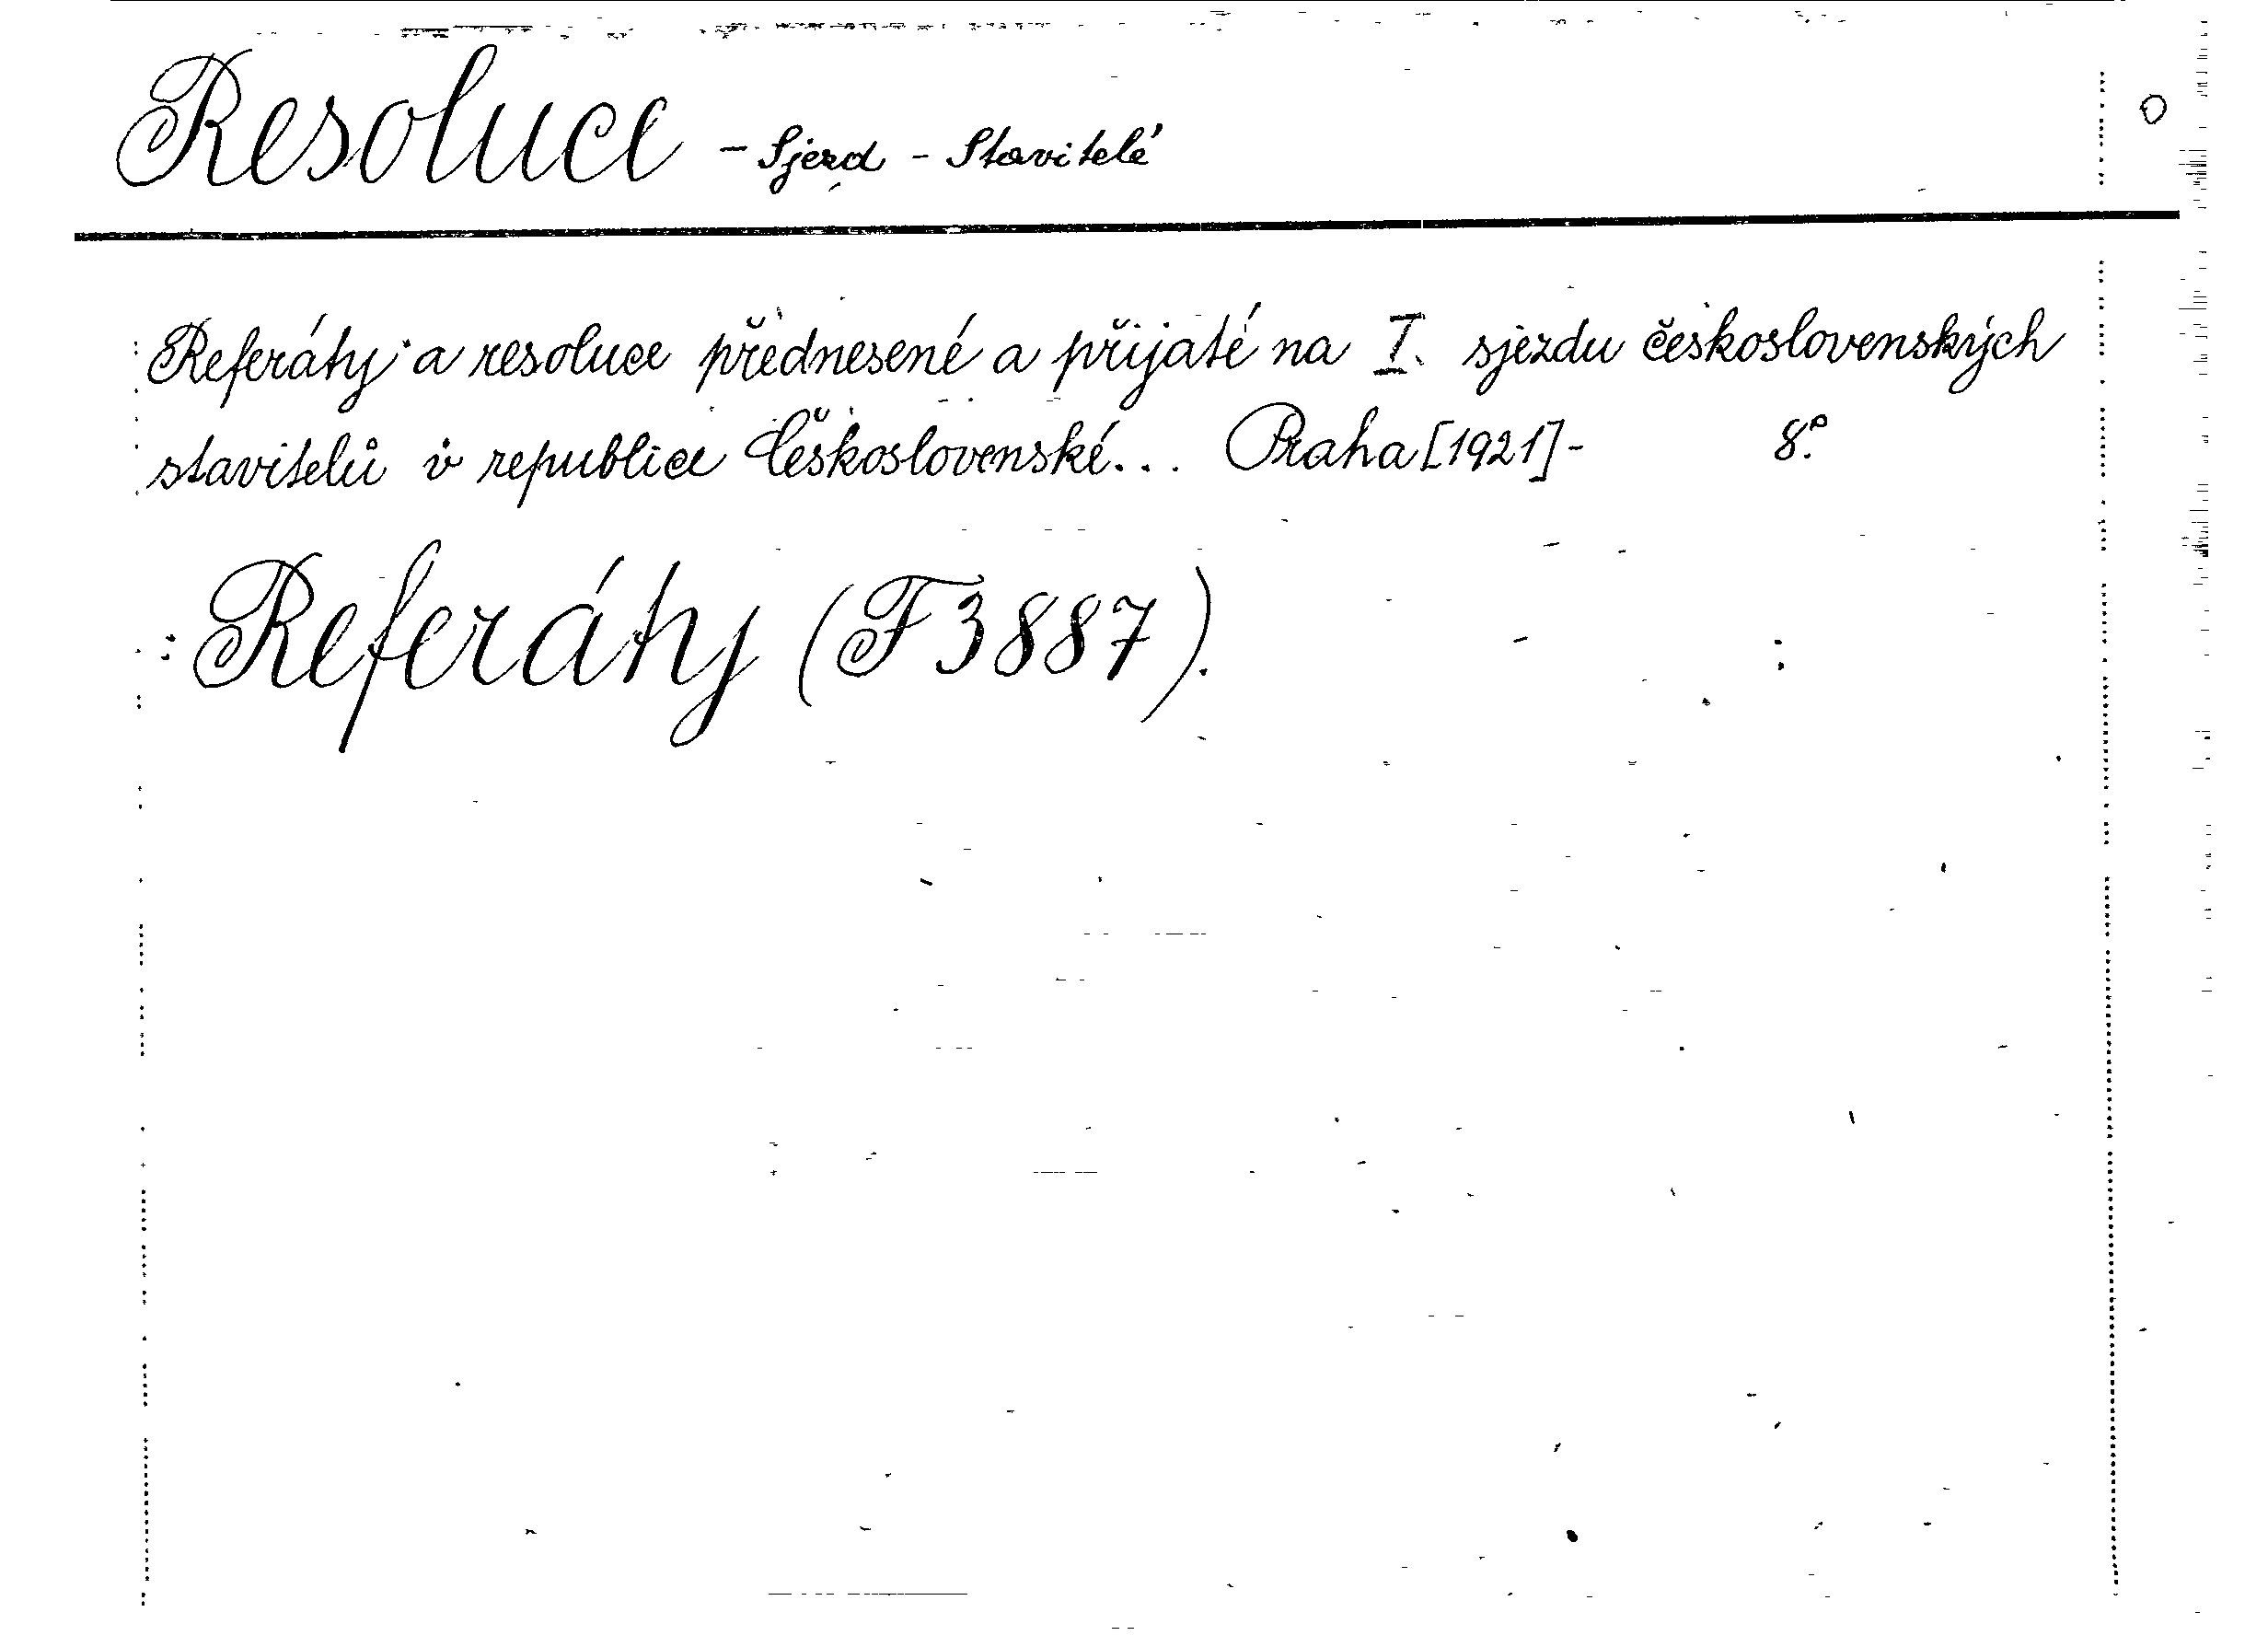 Resoluce - Sjezd - Stavitelé
Referáty a resoluce přednesené a přijaté na I. sjezdu československých
stavitelů v republice Československé... Praha [1921] - 8°
Referáty (F 3887).